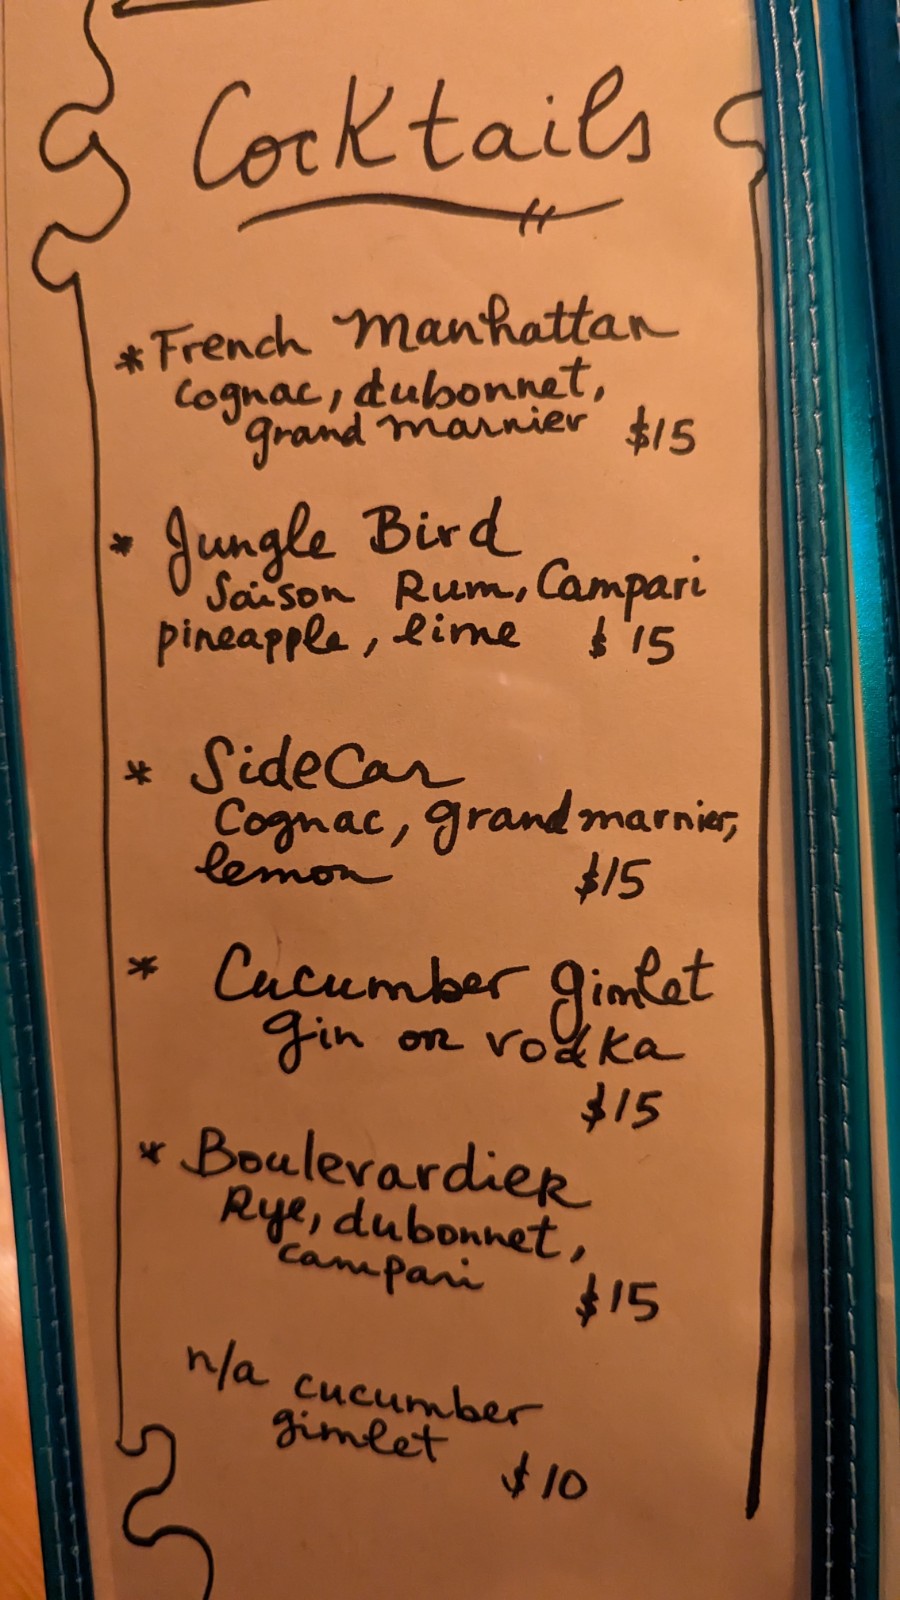 Cocktails
* French Manhattan
Cognac, dubonnet,
grand marnier $15
* Jungle Bird
Saison Rum, Campari
pineapple, lime $15
* SideCar
Cognac, grand marnier,
lemon $15
* Cucumber gimlet
gin or vodka
$15
* Boulevardier
Rye, dubonnet,
campari
$15
n/a cucumber
gimlet
$10